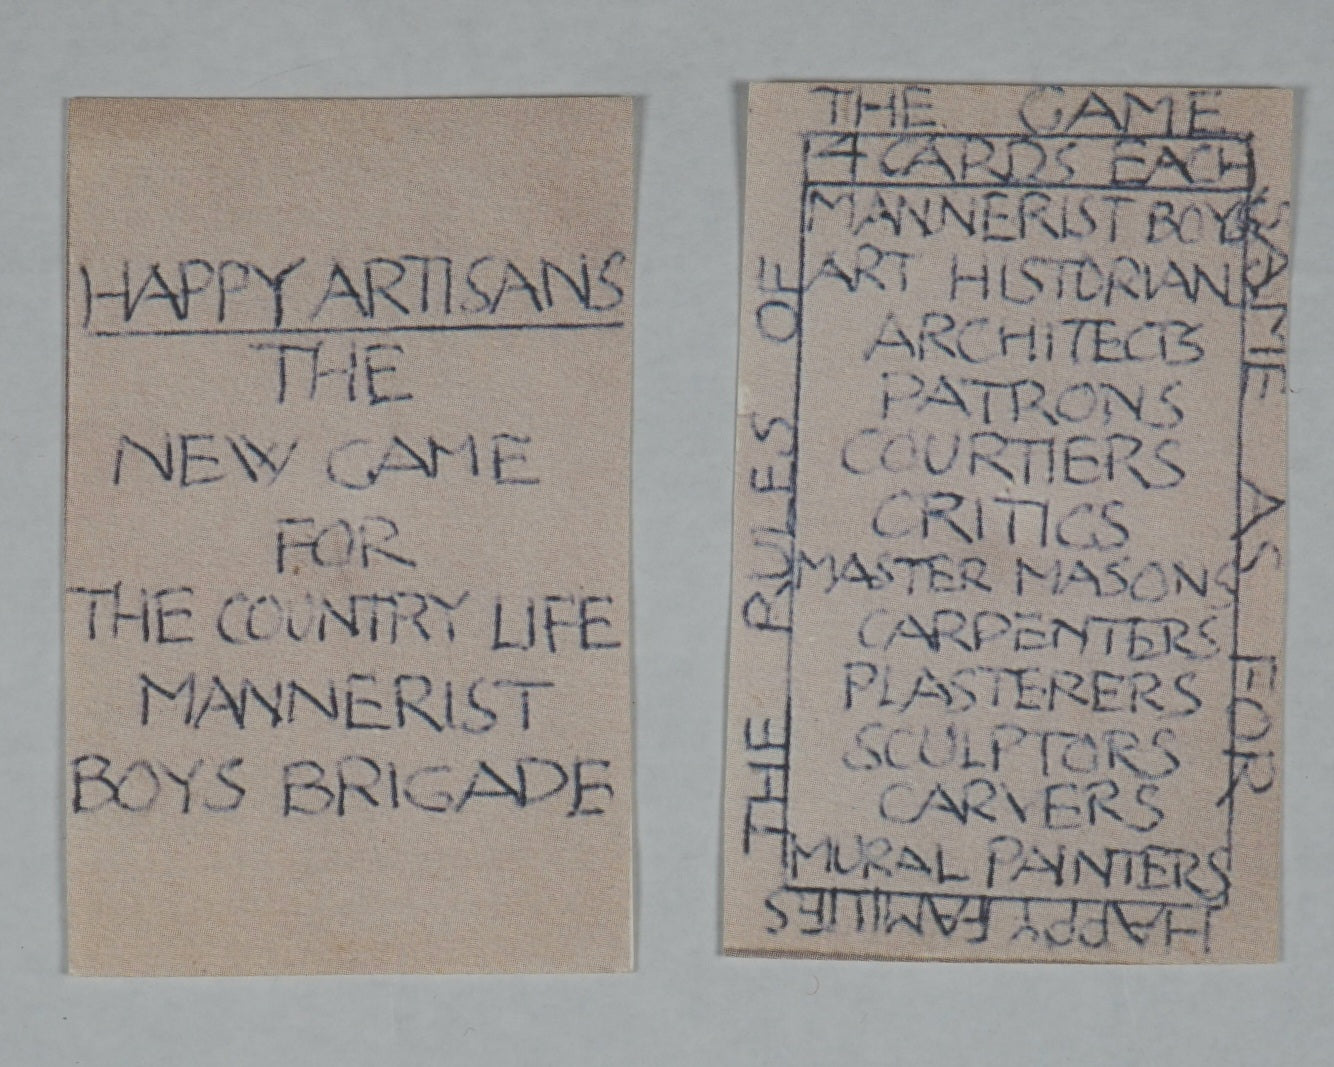 HAPPY ARTISANS
THE
NEW GAME
FOR
THE COUNTRY LIFE
MANNERIST
BOYS BRIGADE
THE RULES OF
THE GAME
SAME AS FOR
HAPPY FAMILIES
4 CARDS EACH
MANNERIST BOYS
ART HISTORIANS
ARCHITECTS
PATRONS
COURTIERS
CRITICS
MASTER MASONS
CARPENTERS
PLASTERERS
SCULPTORS
CARVERS
MURAL PAINTERS